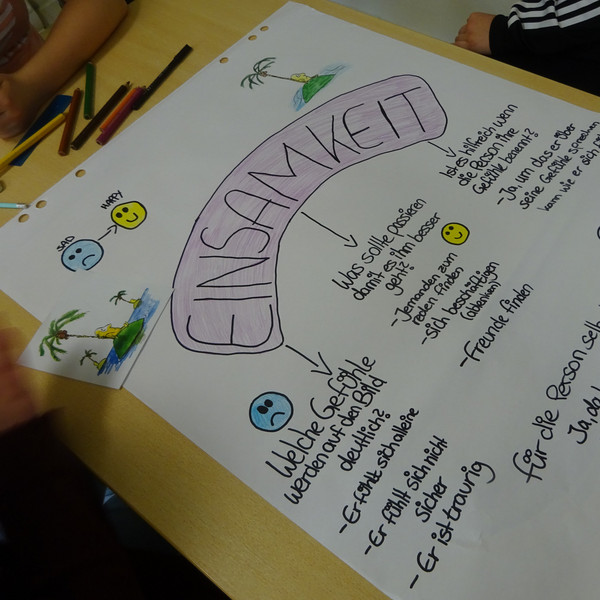 EINSAMKEIT
SAD
HAPPY
Welche Gefühle
werden auf den Bild
deutlich?
- Er fühlt sich alleine
- Er fühlt sich nicht
sicher
- Er ist traurig
Was sollte passieren
damit es ihm besser
geht?
- Jemanden zum
reden finden
- sich beschäftigen
(ablenken)
- Freunde finden
Ist es hilfreich wenn
die Person ihre
Gefühle benennt?
- Ja, um das er über
seine Gefühle sprechen
kann wie er sich
für die Person
Ja, da